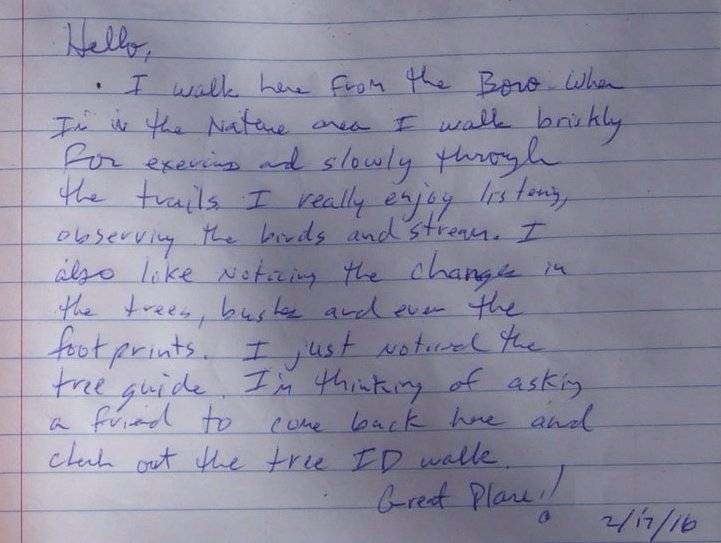 Hello,
. I walk here from the Boro. When
I'm in the Nature area I walk briskly
for exercise and slowly through
the trails. I really enjoy listening,
observing the birds and stream. I
also like noticing the changes in
the trees, bushes and even the
footprints. I just noticed the
tree guide. I'm thinking of asking
a friend to come back here and
check out the tree ID walk.
Great Place!!
2/17/16